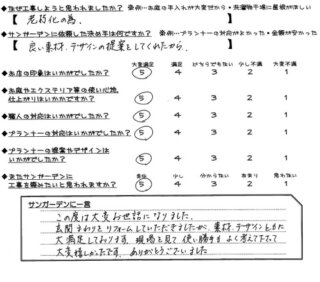 ●なぜ工事しようと思われましたか？ ※例…お庭の手入れが大変だから・洗濯物干場に屋根がほしい
【 老朽化の為。 】
●サンガーデンに依頼した決め手は何ですか？ ※例…プランナーの対応がよかった・金額が安かった
【 良い素材、デザインの提案をしてくれたから。 】
大変満足 満足 どちらでもない 少し不満 大変不満
●お店の印象はいかがでしたか？ 5 4 3 2 1
●お庭やエクステリア等の使い心地、
仕上がりはいかがですか？ 5 4 3 2 1
●職人の対応はいかがでしたか？ 5 4 3 2 1
●プランナーの対応はいかがでしたか？ 5 4 3 2 1
●プランナーの提案やデザインは
いかがでしたか？ 5 4 3 2 1
少し 分からない 余り 思わない
●またサンガーデンに
工事を頼みたいと思われますか？ 5 4 3 2 1
サンガーデンに一言
この度は大変お世話になりました。
玄関まわりをリフォームしていただきましたが、素材、デザインともに
大満足しております。現場を見て使い勝手もよく考えて下さって
大変嬉しかったです。ありがとうございました